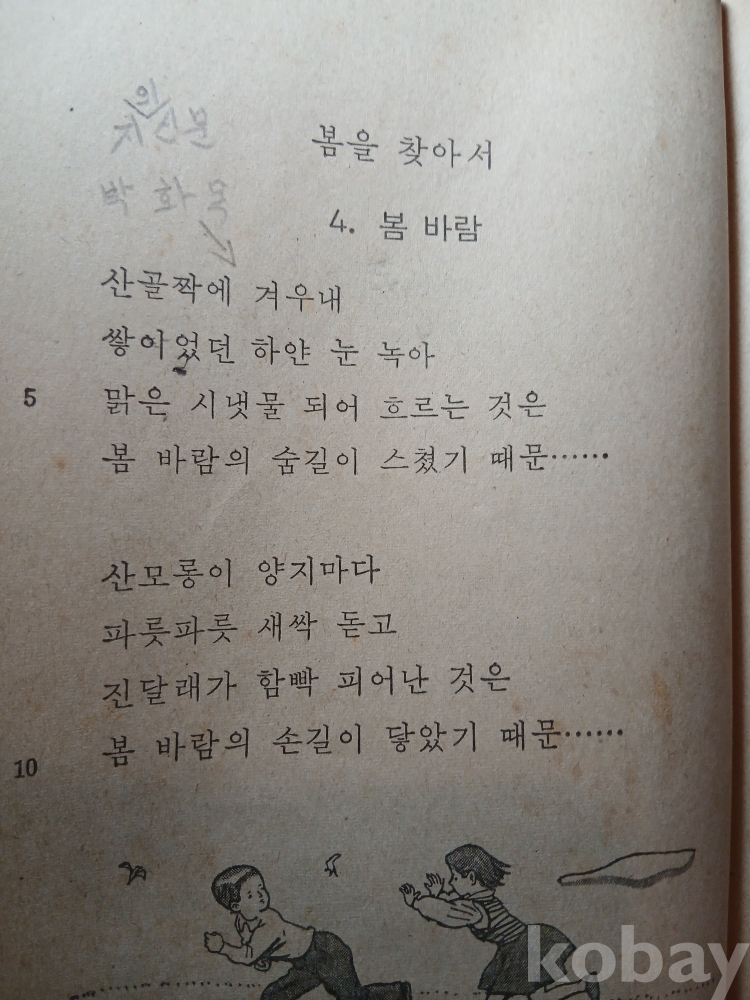 봄을 찾아서
4. 봄 바람
산골짝에 겨우내
쌓이었던 하얀 눈 녹아
5 맑은 시냇물 되어 흐르는 것은
봄 바람의 숨길이 스쳤기 때문……
산모롱이 양지마다
파릇파릇 새싹 돋고
진달래가 함빡 피어난 것은
10 봄 바람의 손길이 닿았기 때문……
kobay